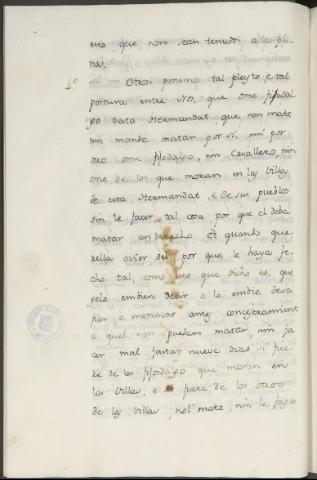 eno que non sean temudos a las pe-
nas.
4º Otrosi ponemos tal pleyto, e tal
postura entre Nos, que ome fijodal-
go desta Hermandat, que non mate
nin mande matar por si, nin por
otro ome fijodalgo, nin Cavallero, nin
ome de los que moran en las Villas
de esta Hermandat, e de sus pueblos
sin le facer tal cosa, por que el deba
matar con derecho. Et quando que-
rella ovier del por que le haya fe-
cho tal, como que dicho es, que
gelo embien decir o le embie desa-
fiar o menazar antes
e quel non puedan matar, nin fa-
cer mal fasta nueve dias si fue-
re de los fijosdalgo que moran en
las Villas, e si fuere de los otros
de las Villas, nol mate, nin le faga